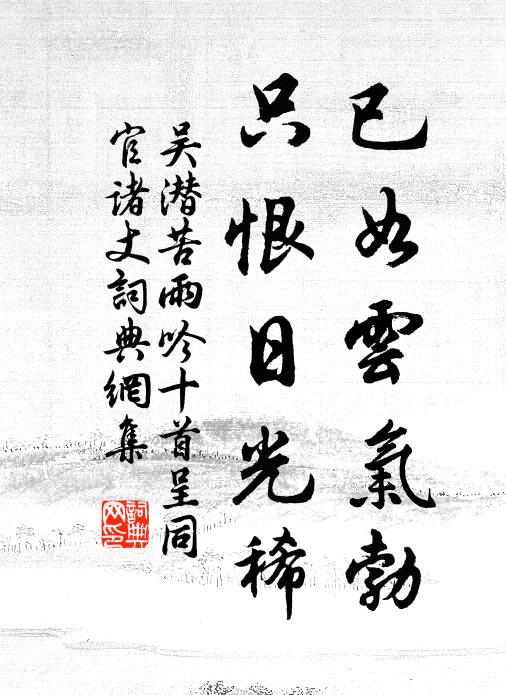 已如雲氣勃
只恨日光稀
吴潜苦雨吟十首呈同
官诸丈詞典網集
詞典
网印